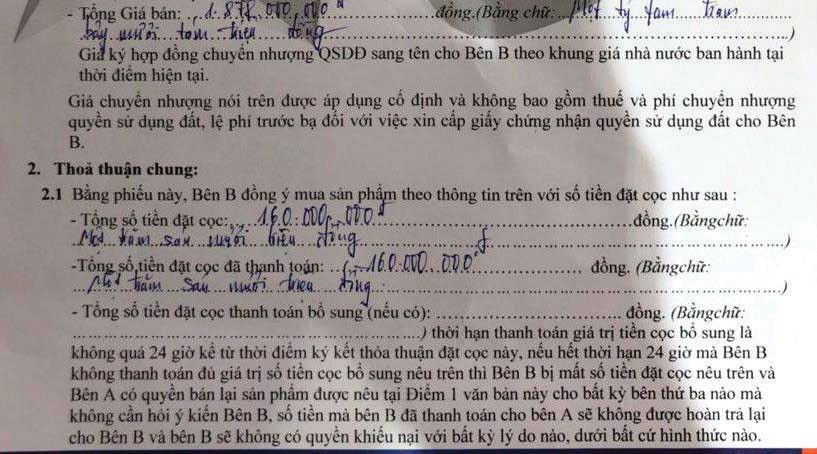 - Tổng Giá bán: 1.878.000.000 đ đồng.(Bằng chữ: Một tỷ tám trăm
bảy mươi tám triệu đồng )
Giá ký hợp đồng chuyển nhượng QSDĐ sang tên cho Bên B theo khung giá nhà nước ban hành tại
thời điểm hiện tại.
Giá chuyển nhượng nói trên được áp dụng cố định và không bao gồm thuế và phí chuyển nhượng
quyền sử dụng đất, lệ phí trước bạ đối với việc xin cấp giấy chứng nhận quyền sử dụng đất cho Bên
B.
2. Thoả thuận chung:
2.1 Bằng phiếu này, Bên B đồng ý mua sản phẩm theo thông tin trên với số tiền đặt cọc như sau :
- Tổng số tiền đặt cọc: 160.000.000 đ đồng.(Bằngchữ:
Một trăm sáu mươi triệu đồng )
-Tổng số tiền đặt cọc đã thanh toán: 160.000.000 đ đồng. (Bằngchữ:
Một trăm sáu mươi triệu đồng )
- Tổng số tiền đặt cọc thanh toán bổ sung (nếu có): đồng. (Bằngchữ:
) thời hạn thanh toán giá trị tiền cọc bổ sung là
không quá 24 giờ kể từ thời điểm ký kết thỏa thuận đặt cọc này, nếu hết thời hạn 24 giờ mà Bên B
không thanh toán đủ giá trị số tiền cọc bổ sung nêu trên thì Bên B bị mất số tiền đặt cọc nêu trên và
Bên A có quyền bán lại sản phẩm được nêu tại Điểm 1 văn bản này cho bất kỳ bên thứ ba nào mà
không cần hỏi ý kiến Bên B, số tiền mà bên B đã thanh toán cho bên A sẽ không được hoàn trả lại
cho Bên B và bên B sẽ không có quyền khiếu nại với bất kỳ lý do nào, dưới bất cứ hình thức nào.